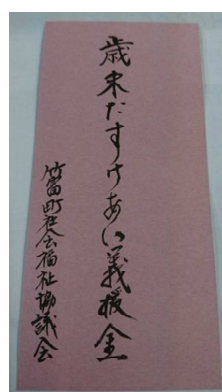 歳末たすけあい義援金
竹富町社会福祉協議会